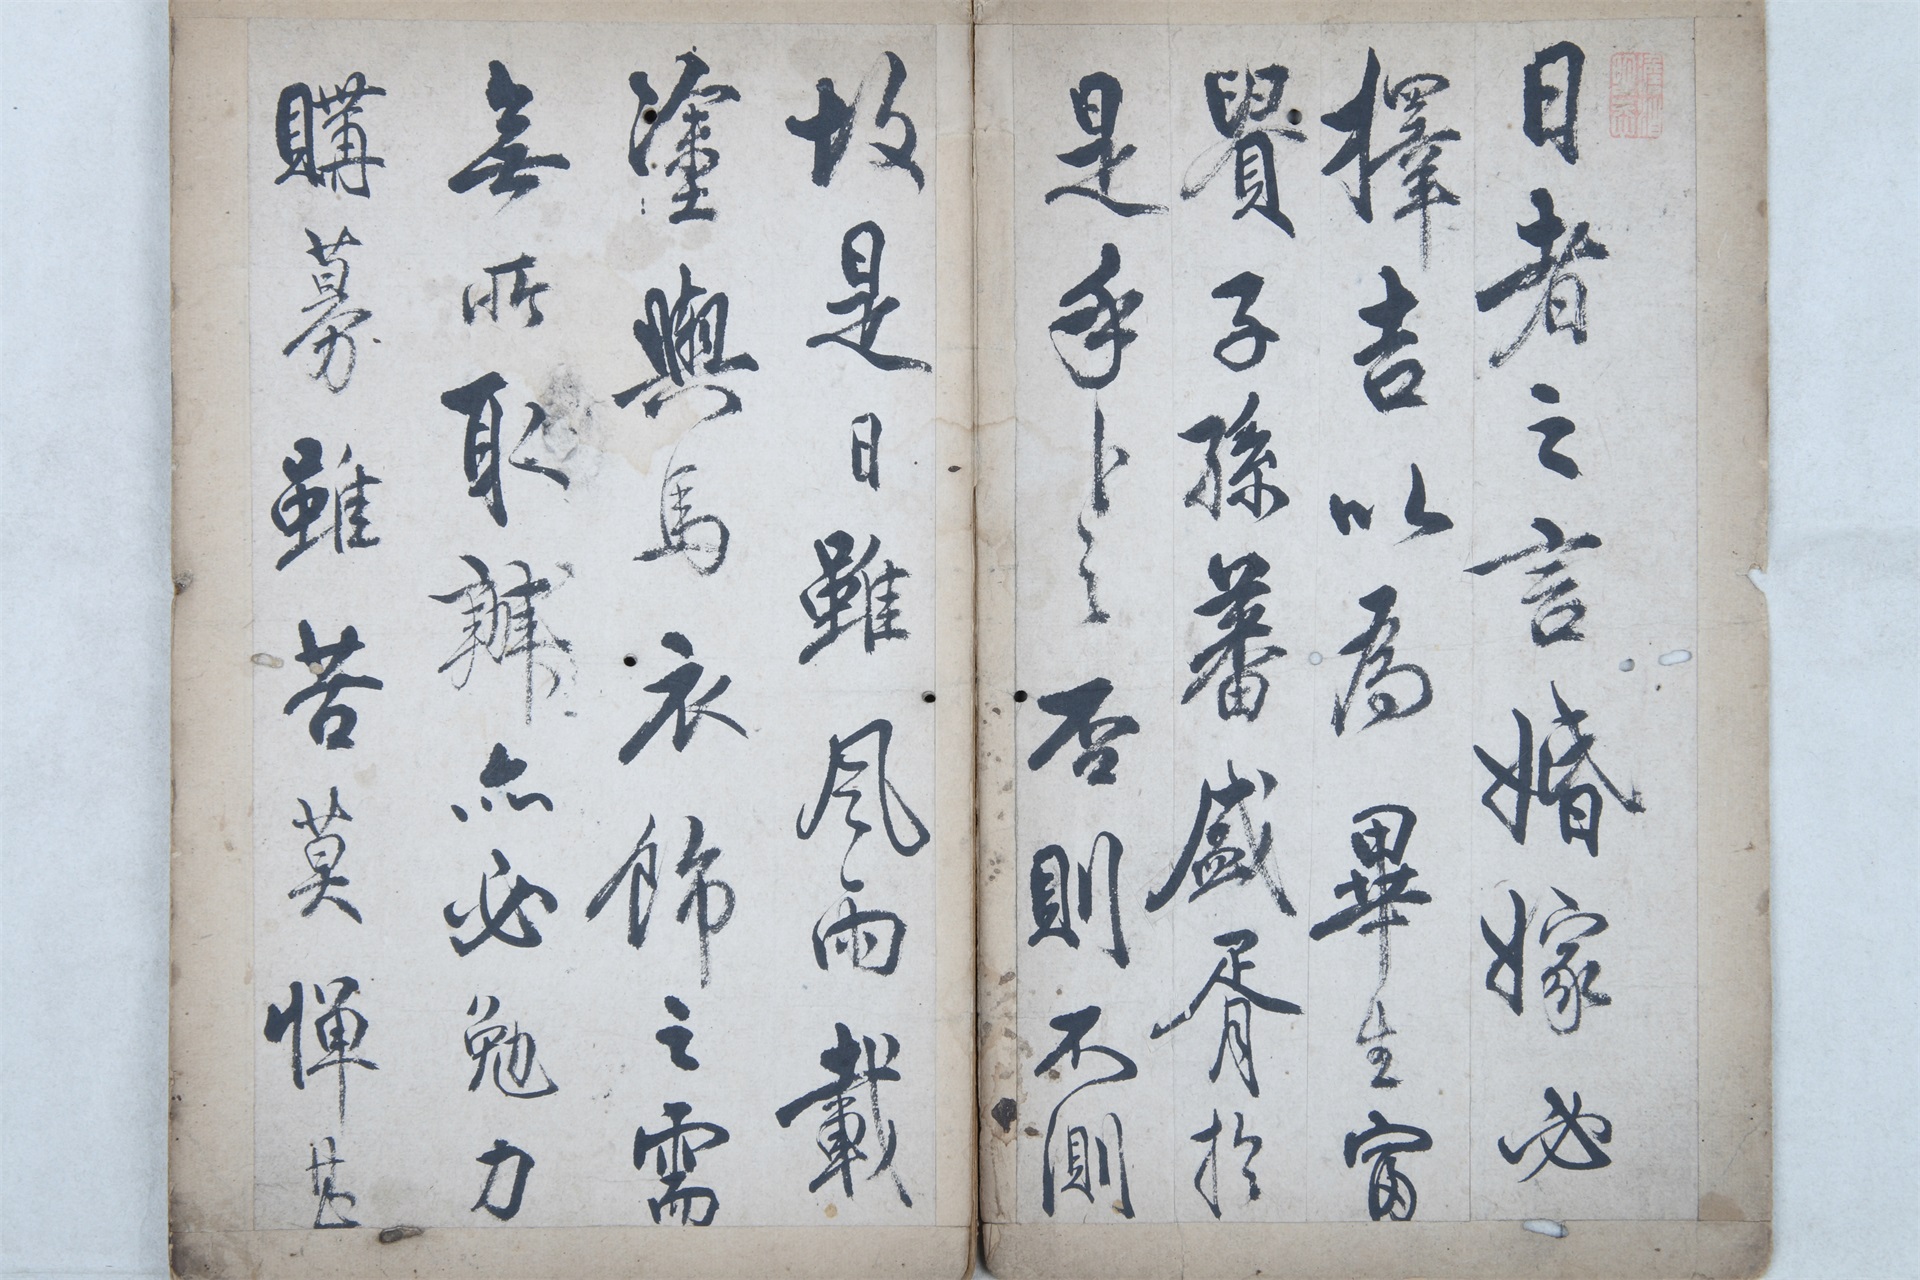 日者之言婚嫁必
擇吉以為畢生富
貴子孫蕃盛胥於
是乎卜之否則不測
故是日雖風雨載
塗輿馬衣飾之需
無所取辦亦必勉力
購募雖苦莫憚甚